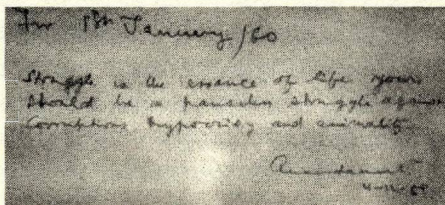 For 1st January/60
Struggle is the essence of life yours
should be a pauseless struggle against
corruption hypocrisy and animality